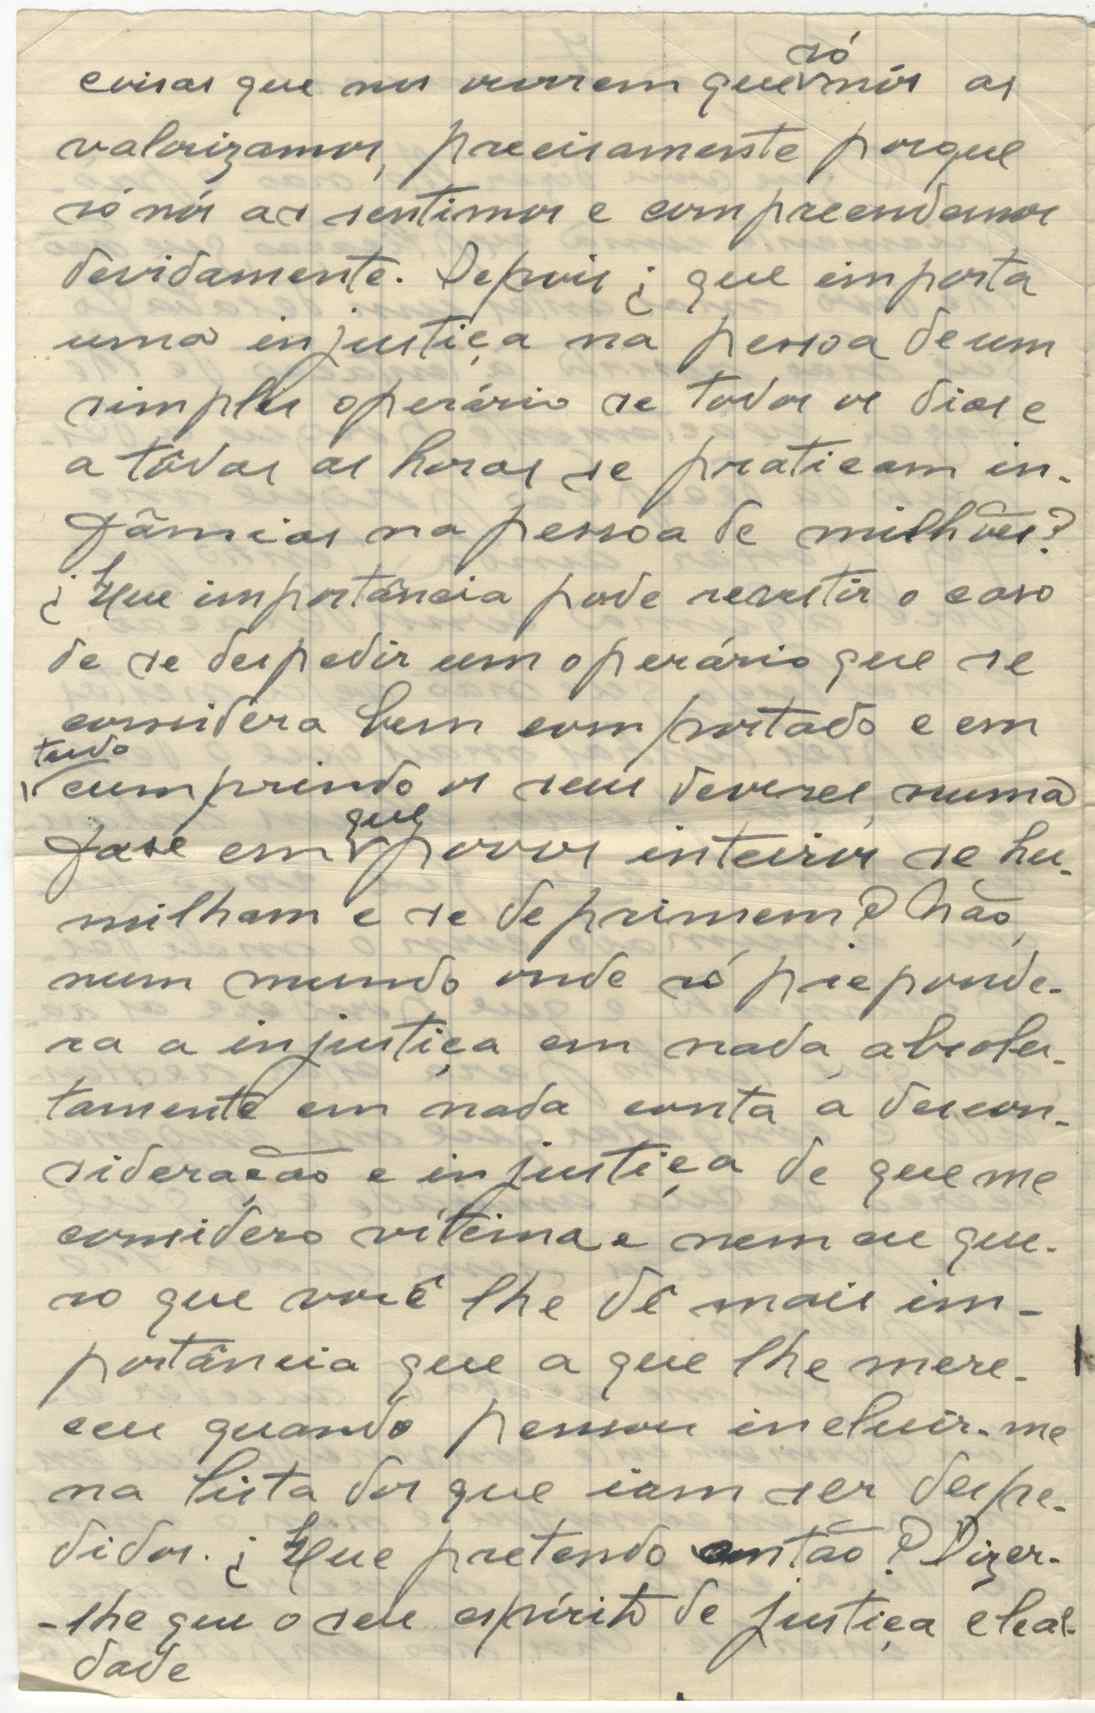 coisas que nos ocorrem que só nós as
valorizamos, precisamente porque
só nós as sentimos e compreendemos
devidamente. Depois ¿ que importa
uma injustiça na pessoa de um
simples operário se todos os dias e
a tôdas as horas se praticam in-
fâmias na pessoa de milhões?
¿ Que importância pode revestir o caso
de se despedir um operário que se
considera bem comportado e em
tendo
cumprindo os seus deveres, numa
fase em que povos inteiros se hu-
milham e se deprimem? Não,
num mundo onde só preponde-
ra a injustiça em nada, absolu-
tamente em nada conta a descon-
sideração e injustiça de que me
considero vítima e nem eu que-
ro que você lhe dê mais im-
portância que a que lhe mere-
ceu quando pensou incluir-me
na lista dos que iam ser despe-
didos. ¿ Que pretendo então? Dizer-
-lhe que o seu espírito de justiça e leal-
dade